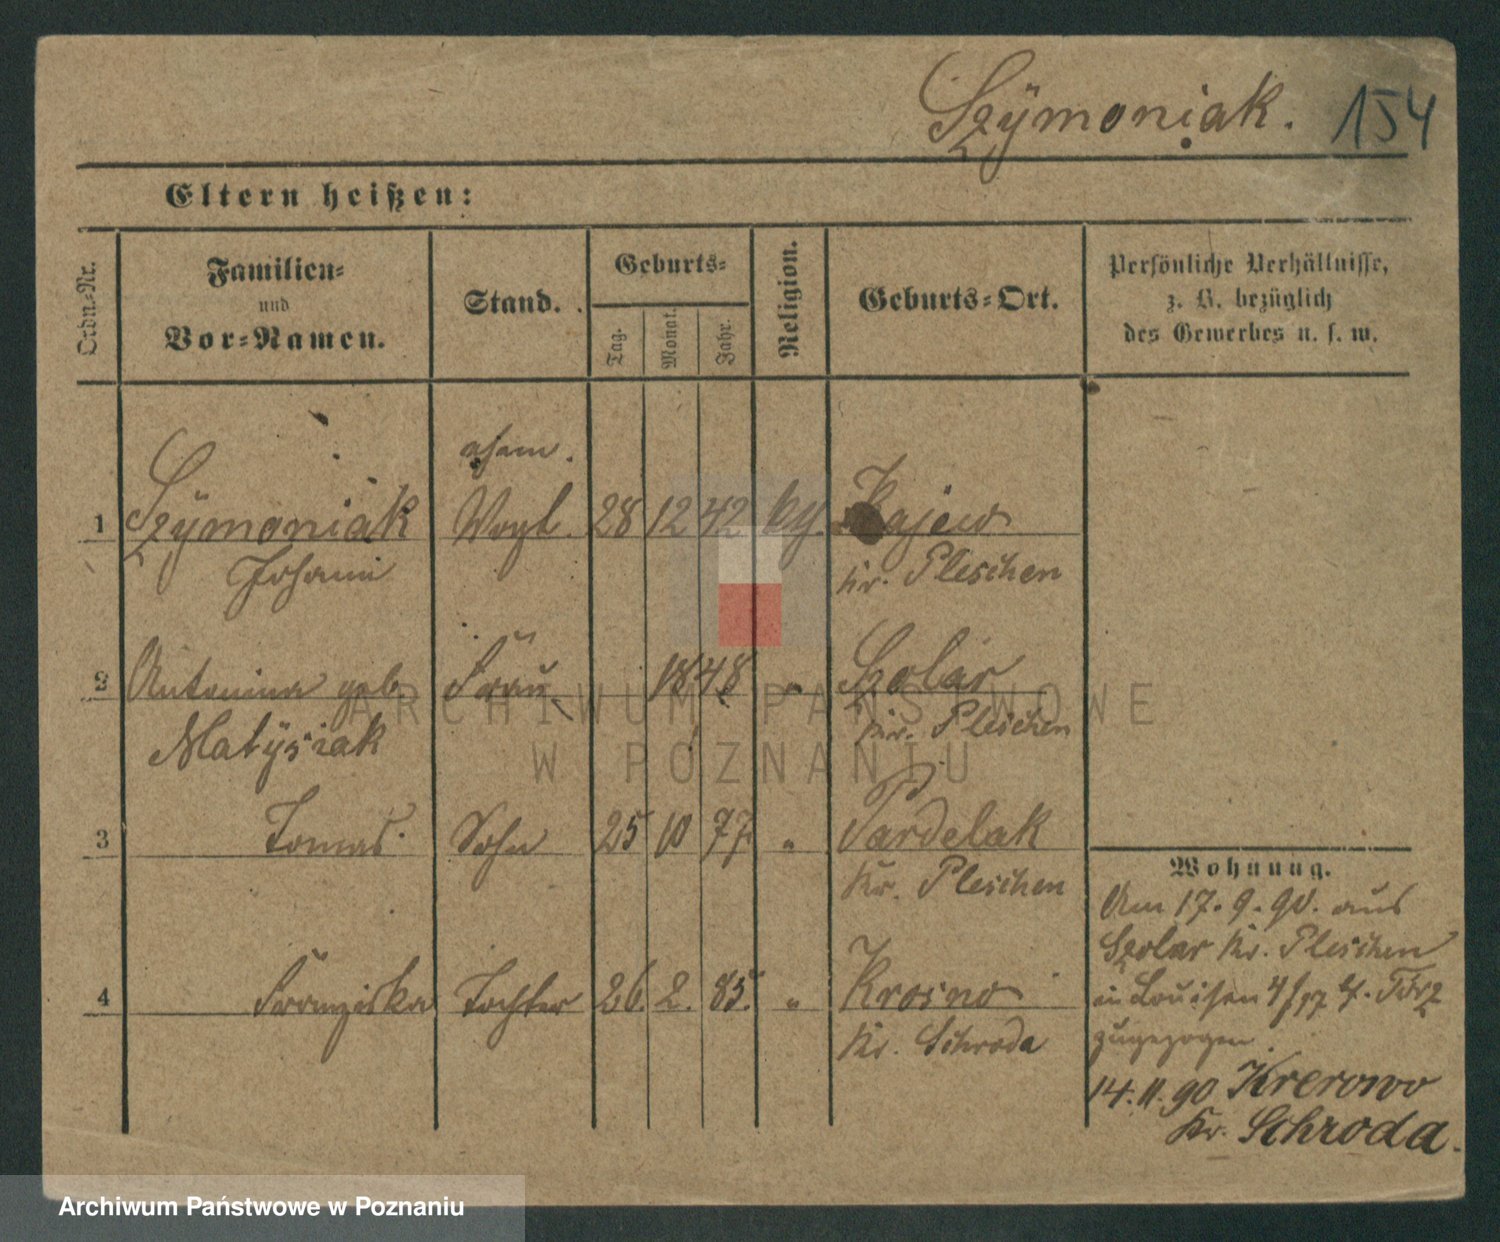 Szÿmoniak. 154
Eltern heißen:
Ordn.-Nr.
Familien-
und
Vor-Namen.
Stand.
Geburts-
Tag.
Monat.
Jahr.
Religion.
Geburts-Ort.
Persönliche Verhältnisse,
z. B. bezüglich
des Gewerbes u. s. w.
ehem.
1 Szÿmoniak Vogt. 28 12 42 kth. Zajew
Johann Kr. Pleschen
2 Antonina geb. Frau 1848 " Szolar
Matÿsiak Kr. Pleschen
3 Tomas Sohn 25 10 77 " Pardelak
Kr. Pleschen
4 Franziska Tochter 26. 2. 85. " Krosno
Kr. Schroda
Wohnung.
Am 17. 9. 90. aus
Szolar Kr. Pleschen
in Louisen
zugezogen
14. 11. 90 Krerowo
Kr. Schroda.
ARCHIWUM PAŃSTWOWE
W POZNANIU
Archiwum Państwowe w Poznaniu